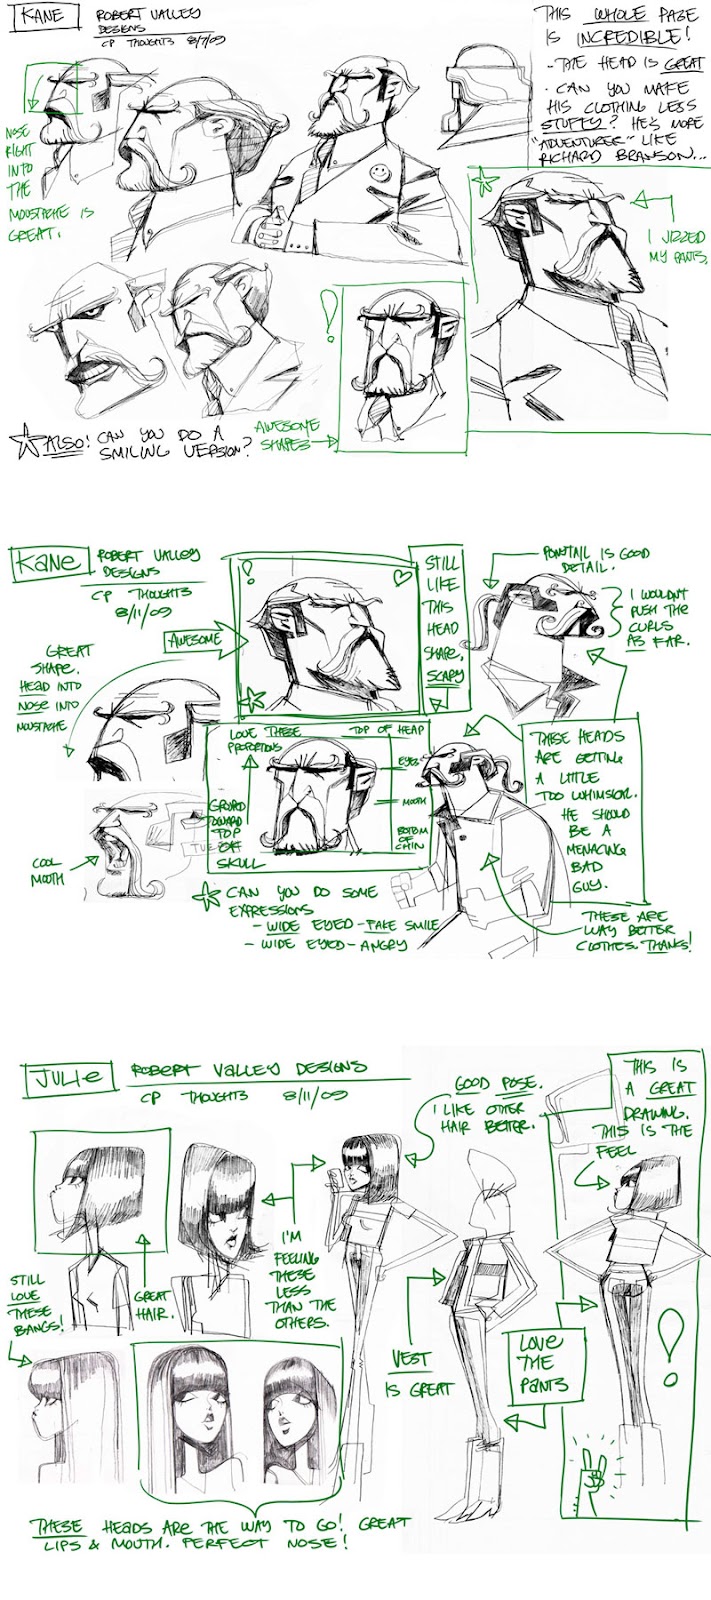 KANE
ROBERT VALLEY
DESIGNS
CP THOUGHTS 8/7/09
THIS WHOLE PAGE
IS INCREDIBLE!
- THE HEAD IS GREAT
- CAN YOU MAKE
HIS CLOTHING LESS
STUFFY? HE'S MORE
"ADVENTURER" LIKE
RICHARD BRANSON...
NOSE
RIGHT
INTO
THE
MOUSTACHE IS
GREAT.
I JIZZED
MY PANTS.
!
ALSO! CAN YOU DO A
SMILING VERSION?
AWESOME
SHAPES
KANE
ROBERT VALLEY
DESIGNS
CP THOUGHTS
8/11/09
GREAT
SHAPE.
HEAD INTO
NOSE INTO
MOUSTACHE
AWESOME
!
STILL
LIKE
THIS
HEAD
SHAPE,
SCARY
PONYTAIL IS GOOD
DETAIL.
I WOULDN'T
PUSH THE
CURLS
AS FAR.
LOVE THESE
PROPORTIONS
TOP OF HEAD
EYES
MOUTH
BOTTOM
OF
CHIN
TOWARD
TOP
OF
SKULL
COOL
MOUTH
THESE HEADS
ARE GETTING
A LITTLE
TOO WHIMSICAL.
HE SHOULD
BE A
MENACING
BAD
GUY.
CAN YOU DO SOME
EXPRESSIONS
- WIDE EYED - FAKE SMILE
- WIDE EYED - ANGRY
THESE ARE
WAY BETTER
CLOTHES. THANKS!
JULIE
ROBERT VALLEY DESIGNS
CP THOUGHTS 8/11/09
GOOD POSE.
I LIKE OTHER
HAIR BETTER.
THIS IS
A GREAT
DRAWING.
THIS IS THE
FEEL
STILL
LOVE
THESE
BANGS!
GREAT
HAIR.
I'M
FEELING
THESE
LESS
THAN THE
OTHERS.
VEST
IS GREAT
LOVE
THE
PANTS
!
THESE HEADS ARE THE WAY TO GO! GREAT
LIPS & MOUTH. PERFECT NOSE!